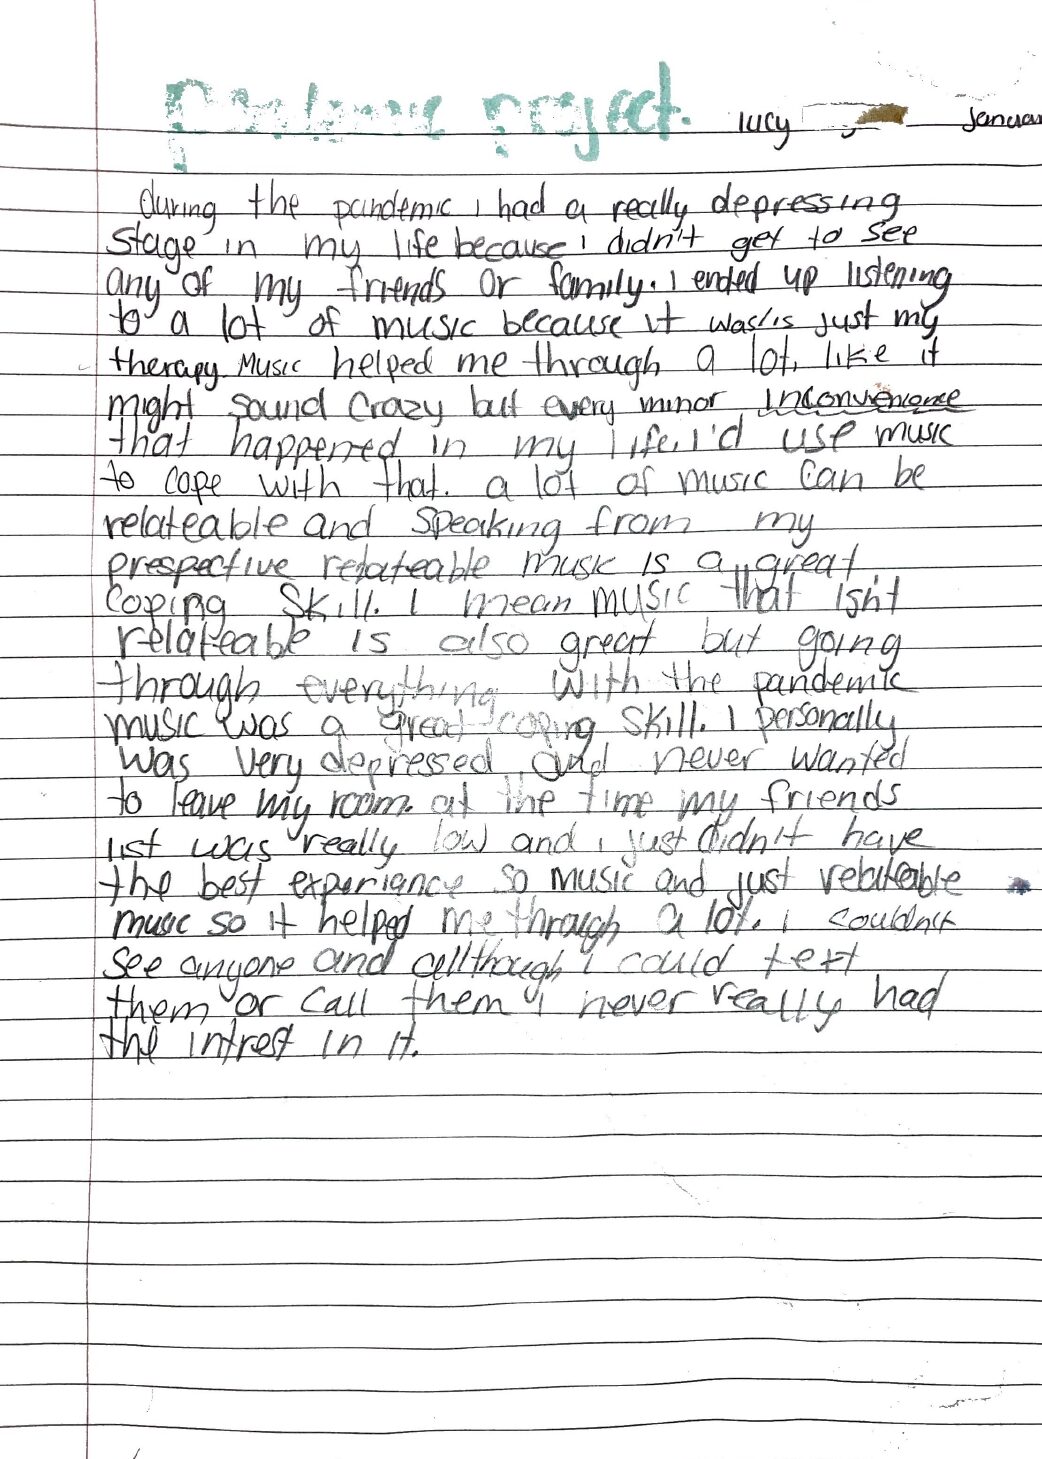 pandemic project. lucy
during the pandemic i had a really depressing
stage in my life because i didn't get to see
any of my friends or family. I ended up listening
to a lot of music because it was/is just my
therapy. Music helped me through a lot, like it
might sound crazy but every minor inconvenience
that happened in my life, i'd use music
to cope with that. a lot of music can be
relateable and speaking from my
prespective relateable music is a great
coping skill. I mean music that isn't
relateable is also great but going
through everything with the pandemic
music was a great coping skill. I personally
was very depressed and never wanted
to leave my room. at the time my friends
list was really low and i just didn't have
the best experiance so music and just relateable
music so it helped me through a lot. i couldn't
see anyone and allthough i could text
them or call them i never really had
the intrest in it.